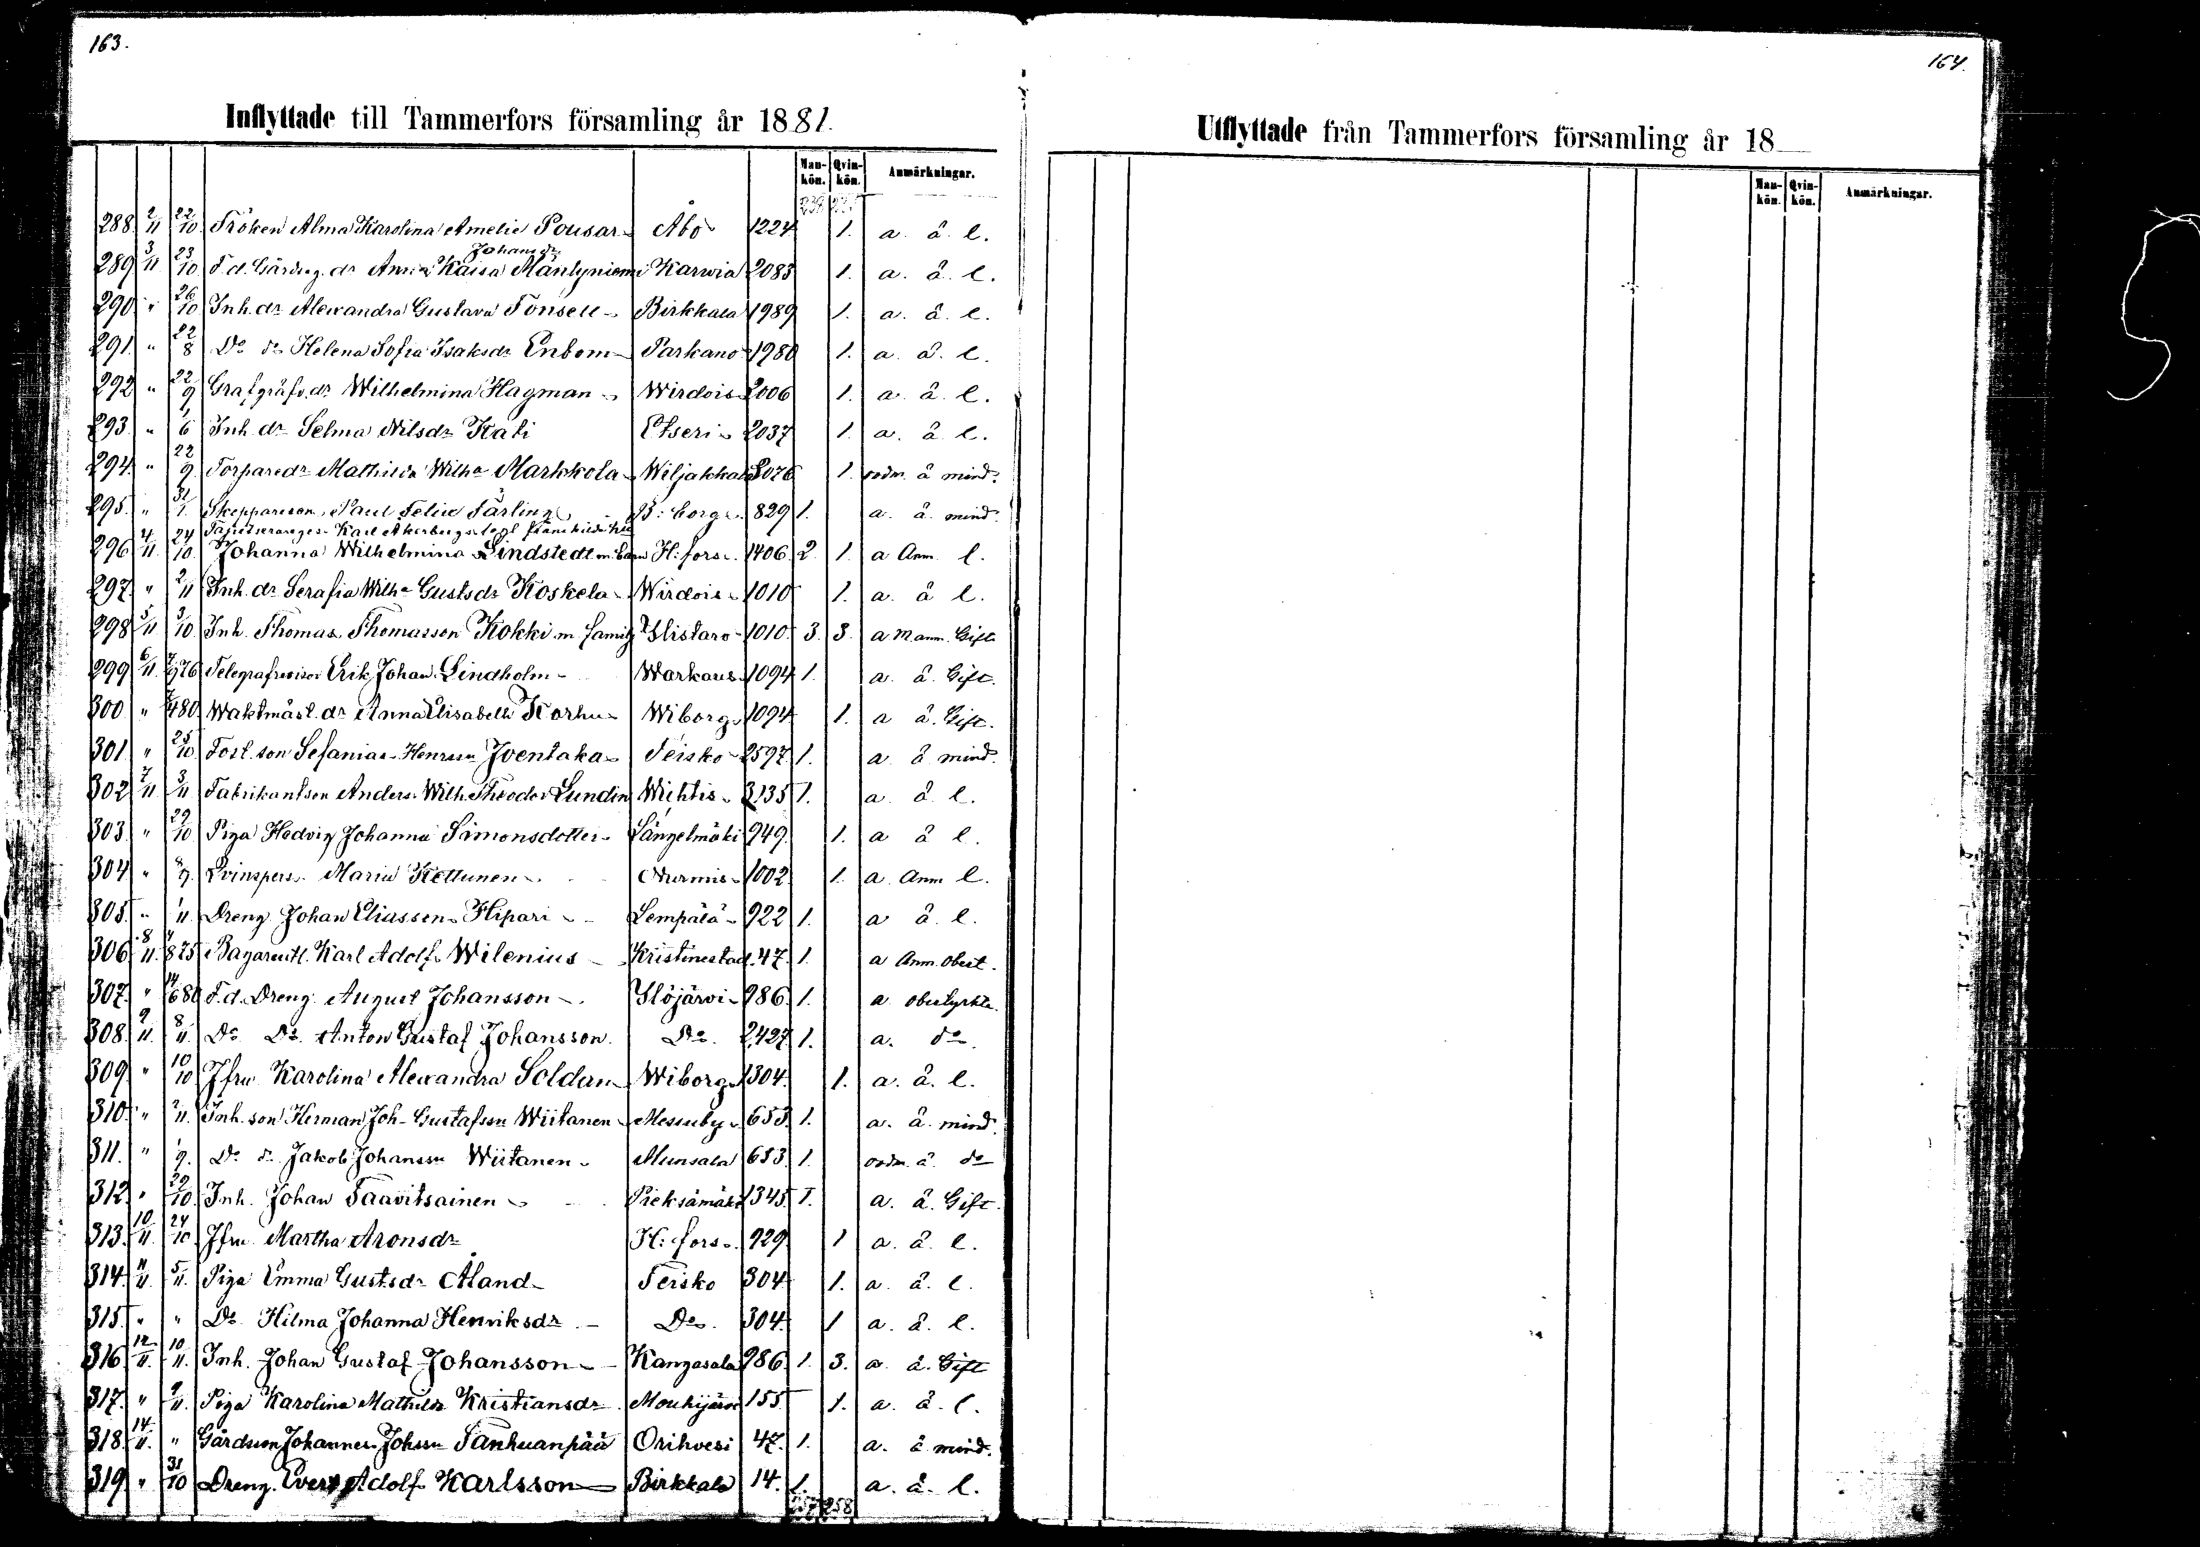 163.
Inflyttade till Tammerfors församling år 1881.
Man-kön. Qvin-kön. Anmärkningar.
288. 2/11 22/10 Fröken Alma Karolina Amelie Pousar Åbo 1224 1. a. å. l.
Johansdr
289 3/11 23/10 F.d. Gårdeg. dr Anna Kaisa Mäntyniemi Karvia 2083 1. a. å. l.
290 " 26/10 Inh. dr Alexandra Gustava Fonsell Birkkala 1989 1. a. å. l.
291. " 22/8 Do do Helena Sofia Isaksdr Enbom Parkano 1980 1. a. å. l.
292 " 22/9 dr Wilhelmina Hagman Wirdois 2006 1. a. å. l.
293. " 1/6 Inh. dr Selma Nilsdr Kati Etseri 2037 1. a. å l.
294. " 22/9 Torparedr Mathilda Wilha Markkola Wiljakkala 2076 1. å mind.
295. " 31/1. Skeppareson Paul Felix Färling B:borg 829 1. a. å mind.
Karl Åkerbergs
296 4/11 24/10. Johanna Wilhelmina Lindstedt m. barn H:fors 1406. 2. 1. a Anm. l.
297. " 2/11 Inh. dr Serafia Wilha Gustsdr Koskela Wirdois 1010 1. a. å l.
298 5/11 3/10. Inh. Thomas Thomasson Kokki m familj Ylistaro 1010. 3. 3. a Manm. Gift
299 6/11. 7/9 76 Telegrafrevisor Erik Johan Lindholm Warkaus 1094 1. a. å. Gift.
300 " 7/4 80 Waktmäst. dr Anna Elisabeth Korhu Wiborg 1094 1. a å. Gift.
301. " 25/10 Fost. son Sefanias Henrssn Jventaka Teisko 2597. 1. a å mind.
302 7/11 3/11 Fabrikantson Anders Wilh. Theodor Lundin Wichtis 3135 1. a. å l.
303. " 29/10 Piga Hedvig Johanna Simonsdotter Längelmäki 949. 1. a å l.
304 " /9. Qvinspers. Maria Kettunen Nurmis 1002 1. a. Anm l.
305. " 1/11. Dreng Johan Eliasson Hipari Lempälä 922 1. a å. l.
306 8/11. 4/8 75 Karl Adolf Wilenius Kristinestad. 47. 1. a Anm. obest.
307. " 14/6 80 F.d. Dreng August Johansson Ylöjärvi 986. 1. a obestyrkta.
308. 9/11. 8/11. Do Do Anton Gustaf Johansson. Do. 2427. 1. a. do.
309. " 10/10 Jfru Karolina Alexandra Soldan Wiborg 1304. 1. a. å. l.
310. " 2/11. Inh. son Herman Joh. Gustafssn Wiitanen Messuby 653. 1. a. å mind.
311. " 1/9. Do do Jakob Johanssn Wiitanen Munsala 653. 1. å. do
312 " 29/10. Inh. Johan Taavitsainen Pieksämäki 1345. 1. a. å. Gift.
313. 10/11. 24/10 Jfru Martha Aronsdr H:fors 929. 1 a. å. l.
314. 11/11. 5/11. Piga Emma Gustsdr Åland Teisko 304 1. a. å. l.
315. " " Do Hilma Johanna Henriksdr Do 304. 1 a. å. l.
316 12/11. 10/11. Inh. Johan Gustaf Johansson Kangasala 986. 1. 3. a. å. Gift
317. " 9/11. Piga Karolina Mathilda Kristiansdr Mouhijärvi 155 1. a. å. l.
318. 14/11. " Gårdsson Johannes Johssn Tanhuanpää Orihvesi 47. 1. a. å mind.
319 " 31/10 Dreng. Evert Adolf Karlsson Birkkala 14. 1. a. å. l.
258
164.
Utflyttade från Tammerfors församling år 18
Man-kön. Qvin-kön. Anmärkningar.